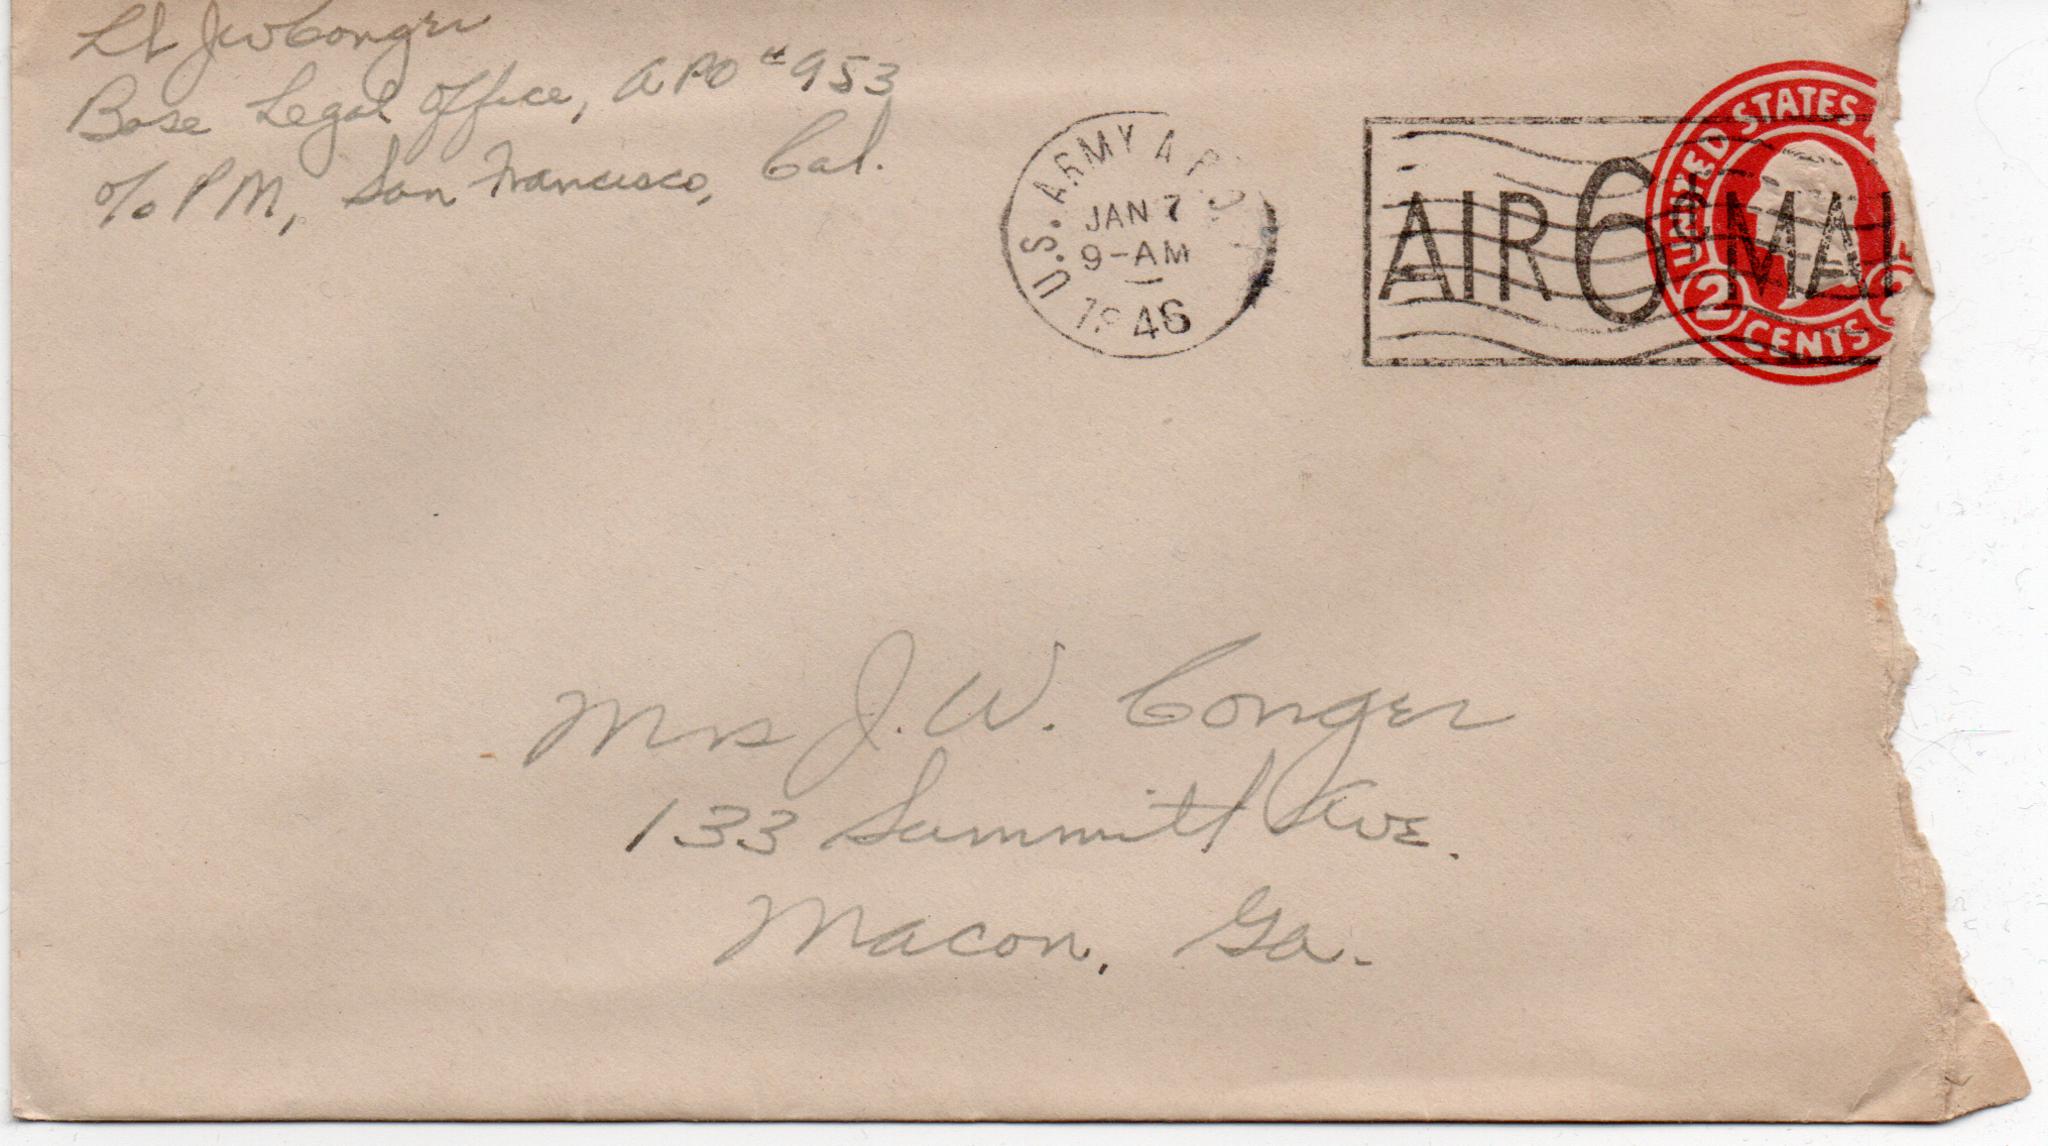 Lt JW Conger
Base Legal Office, APO #953
c/o PM, San Francisco, Cal.
U.S. ARMY A.P.O.
JAN 7
9-AM
1946
AIR 6¢ MAI
UNITED STATES
2 CENTS 2
Mrs J. W. Conger
133 Summitt Ave.
Macon, Ga.